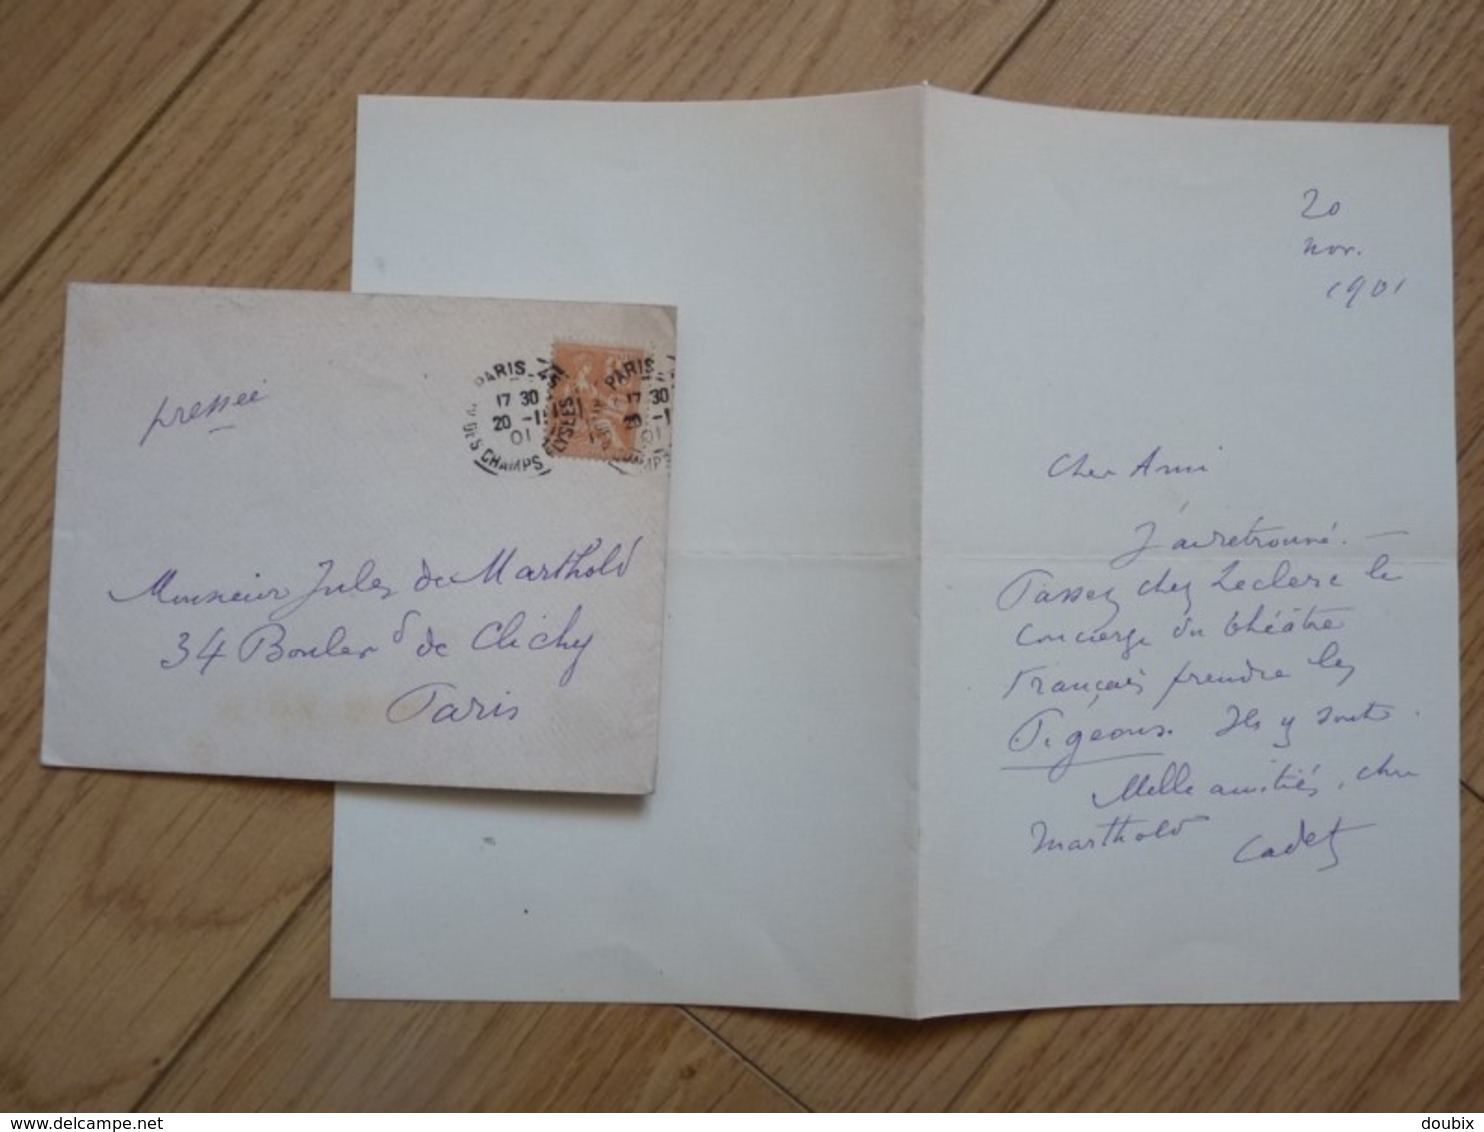 pressée
PARIS
17 30
20 -11
01
AV. DES CHAMPS ELYSEES
PARIS
17 30
20 -1
01
Monsieur Jules de Marthold
34 Bouler d de Clichy
Paris
20
nov.
1901
Cher Ami
J'ai retrouvé. —
Passez chez Leclerc le
concierge du théâtre
Français prendre les
Pigeons. Ils y sont.
Mille amitiés, cher
Marthold
Cadet
doubix